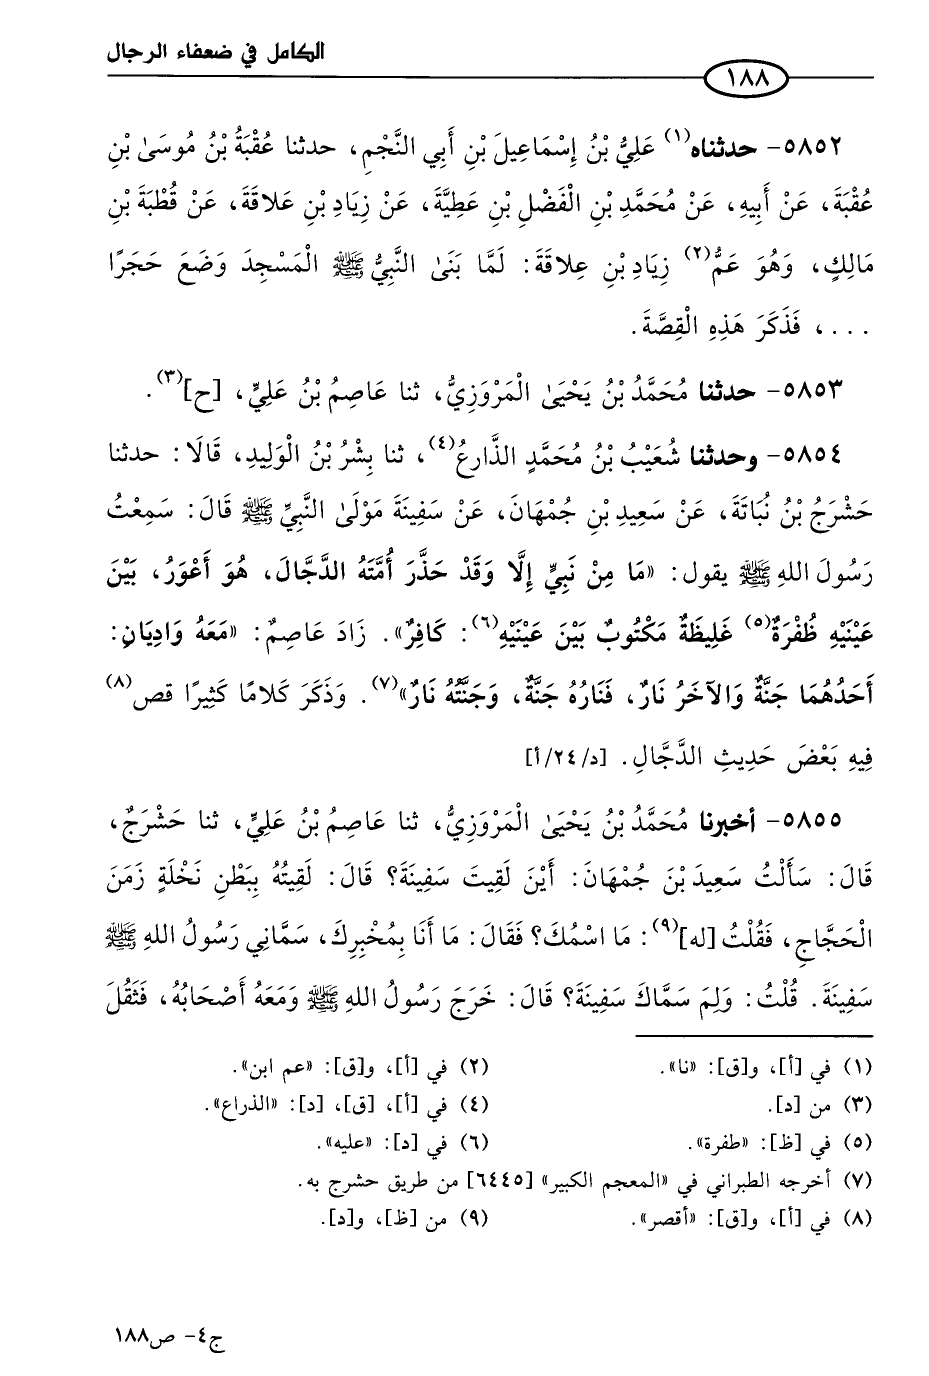 الكامل في ضعفاء الرجال
١٨٨
٥٨٥٢- حدثناه(١) عَلِيُّ بْنُ إِسْمَاعِيلَ بْنِ أَبِي النَّجْمِ، حدثنا عُقْبَةُ بْنُ مُوسَىٰ بْنِ
عُقْبَةَ، عَنْ أَبِيهِ، عَنْ مُحَمَّدِ بْنِ الْفَضْلِ بْنِ عَطِيَّةَ، عَنْ زِيَادِ بْنِ عَلاقَةَ، عَنْ قُطْبَةَ بْنِ
مَالِكٍ، وَهُوَ عَمُّ(٢) زِيَادِ بْنِ عِلاقَةَ: لَمَّا بَنَىٰ النَّبِيُّ ﷺ الْمَسْجِدَ وَضَعَ حَجَرًا
...، فَذَكَرَ هَذِهِ الْقِصَّةَ.
٥٨٥٣- حدثنا مُحَمَّدُ بْنُ يَحْيَىٰ الْمَرْوَزِيُّ، ثنا عَاصِمُ بْنُ عَلِيٍّ، [ح](٣).
٥٨٥٤- وحدثنا شُعَيْبُ بْنُ مُحَمَّدٍ الذَّارِعُ(٤)، ثنا بِشْرُ بْنُ الْوَلِيدِ، قَالَا: حدثنا
حَشْرَجُ بْنُ نُبَاتَةَ، عَنْ سَعِيدِ بْنِ جُمْهَانَ، عَنْ سَفِينَةَ مَوْلَىٰ النَّبِيِّ ﷺ قَالَ: سَمِعْتُ
رَسُولَ اللهِ ﷺ يقول: «مَا مِنْ نَبِيٍّ إِلَّا وَقَدْ حَذَّرَ أُمَّتَهُ الدَّجَّالَ، هُوَ أَعْوَرُ، بَيْنَ
عَيْنَيْهِ ظُفْرَةٌ(٥) غَلِيظَةٌ مَكْتُوبٌ بَيْنَ عَيْنَيْهِ(٦): كَافِرٌ». زَادَ عَاصِمٌ: «مَعَهُ وَادِيَانِ:
أَحَدُهُمَا جَنَّةٌ وَالآخَرُ نَارٌ، فَنَارُهُ جَنَّةٌ، وَجَنَّتُهُ نَارٌ»(٧). وَذَكَرَ كَلامًا كَثِيرًا قص(٨)
فِيهِ بَعْضَ حَدِيثِ الدَّجَّالِ. [د/٢٤/أ]
٥٨٥٥- أخبرنا مُحَمَّدُ بْنُ يَحْيَىٰ الْمَرْوَزِيُّ، ثنا عَاصِمُ بْنُ عَلِيٍّ، ثنا حَشْرَجٌ،
قَالَ: سَأَلْتُ سَعِيدَ بْنَ جُمْهَانَ: أَيْنَ لَقِيتَ سَفِينَةَ؟ قَالَ: لَقِيتُهُ بِبَطْنِ نَخْلَةٍ زَمَنَ
الْحَجَّاجِ، فَقُلْتُ [له](٩): مَا اسْمُكَ؟ فَقَالَ: مَا أَنَا بِمُخْبِرِكَ، سَمَّانِي رَسُولُ اللهِ ﷺ
سَفِينَةَ. قُلْتُ: وَلِمَ سَمَّاكَ سَفِينَةَ؟ قَالَ: خَرَجَ رَسُولُ اللهِ ﷺ وَمَعَهُ أَصْحَابُهُ، فَثَقُلَ
(١) في [أ]، و[ق]: «نا». (٢) في [أ]، و[ق]: «عم ابن».
(٣) من [د]. (٤) في [أ]، [ق]، [د]: «الذراع».
(٥) في [ظ]: «طفرة». (٦) في [د]: «عليه».
(٧) أخرجه الطبراني في «المعجم الكبير» [٦٤٤٥] من طريق حشرج به.
(٨) في [أ]، و[ق]: «أقصر». (٩) من [ظ]، و[د].
ج٤- ص١٨٨